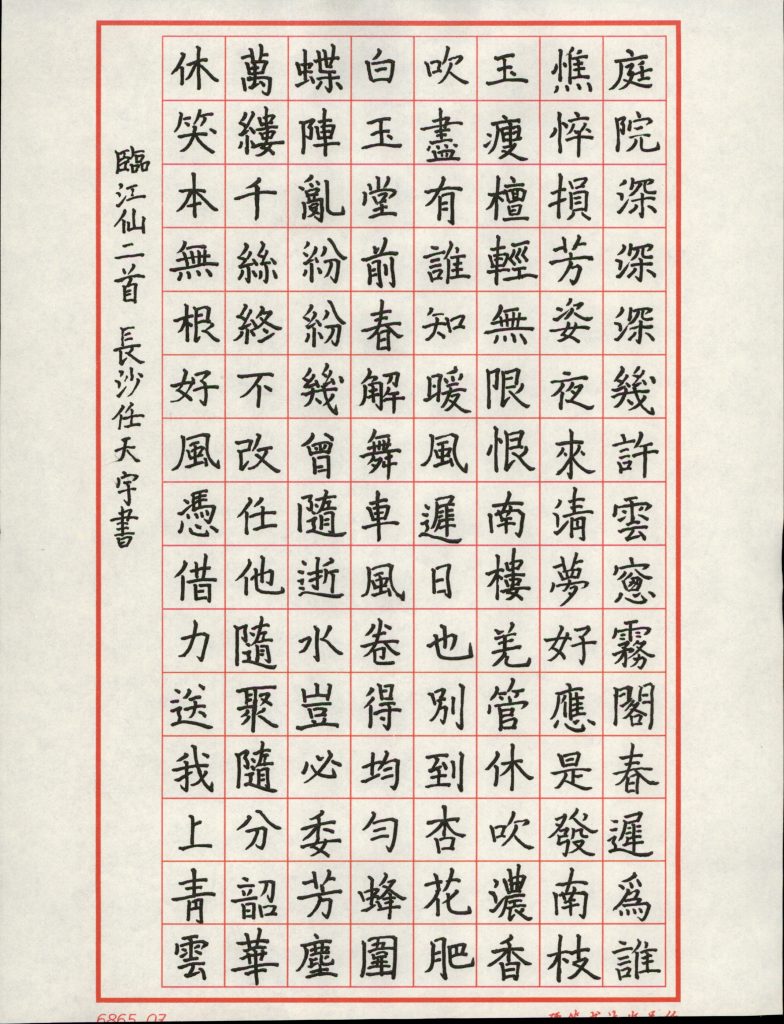 庭院深深深幾許雲窗霧閣春遲爲誰
憔悴損芳姿夜來淸夢好應是發南枝
玉瘦檀輕無限恨南樓羌管休吹濃香
吹盡有誰知暖風遲日也別到杏花肥
白玉堂前春解舞車風卷得均勻蜂圍
蝶陣亂紛紛幾曾隨逝水豈必委芳塵
萬縷千絲終不改任他隨聚隨分韶華
休笑本無根好風憑借力送我上靑雲
臨江仙二首 長沙任天宇書
6865 07